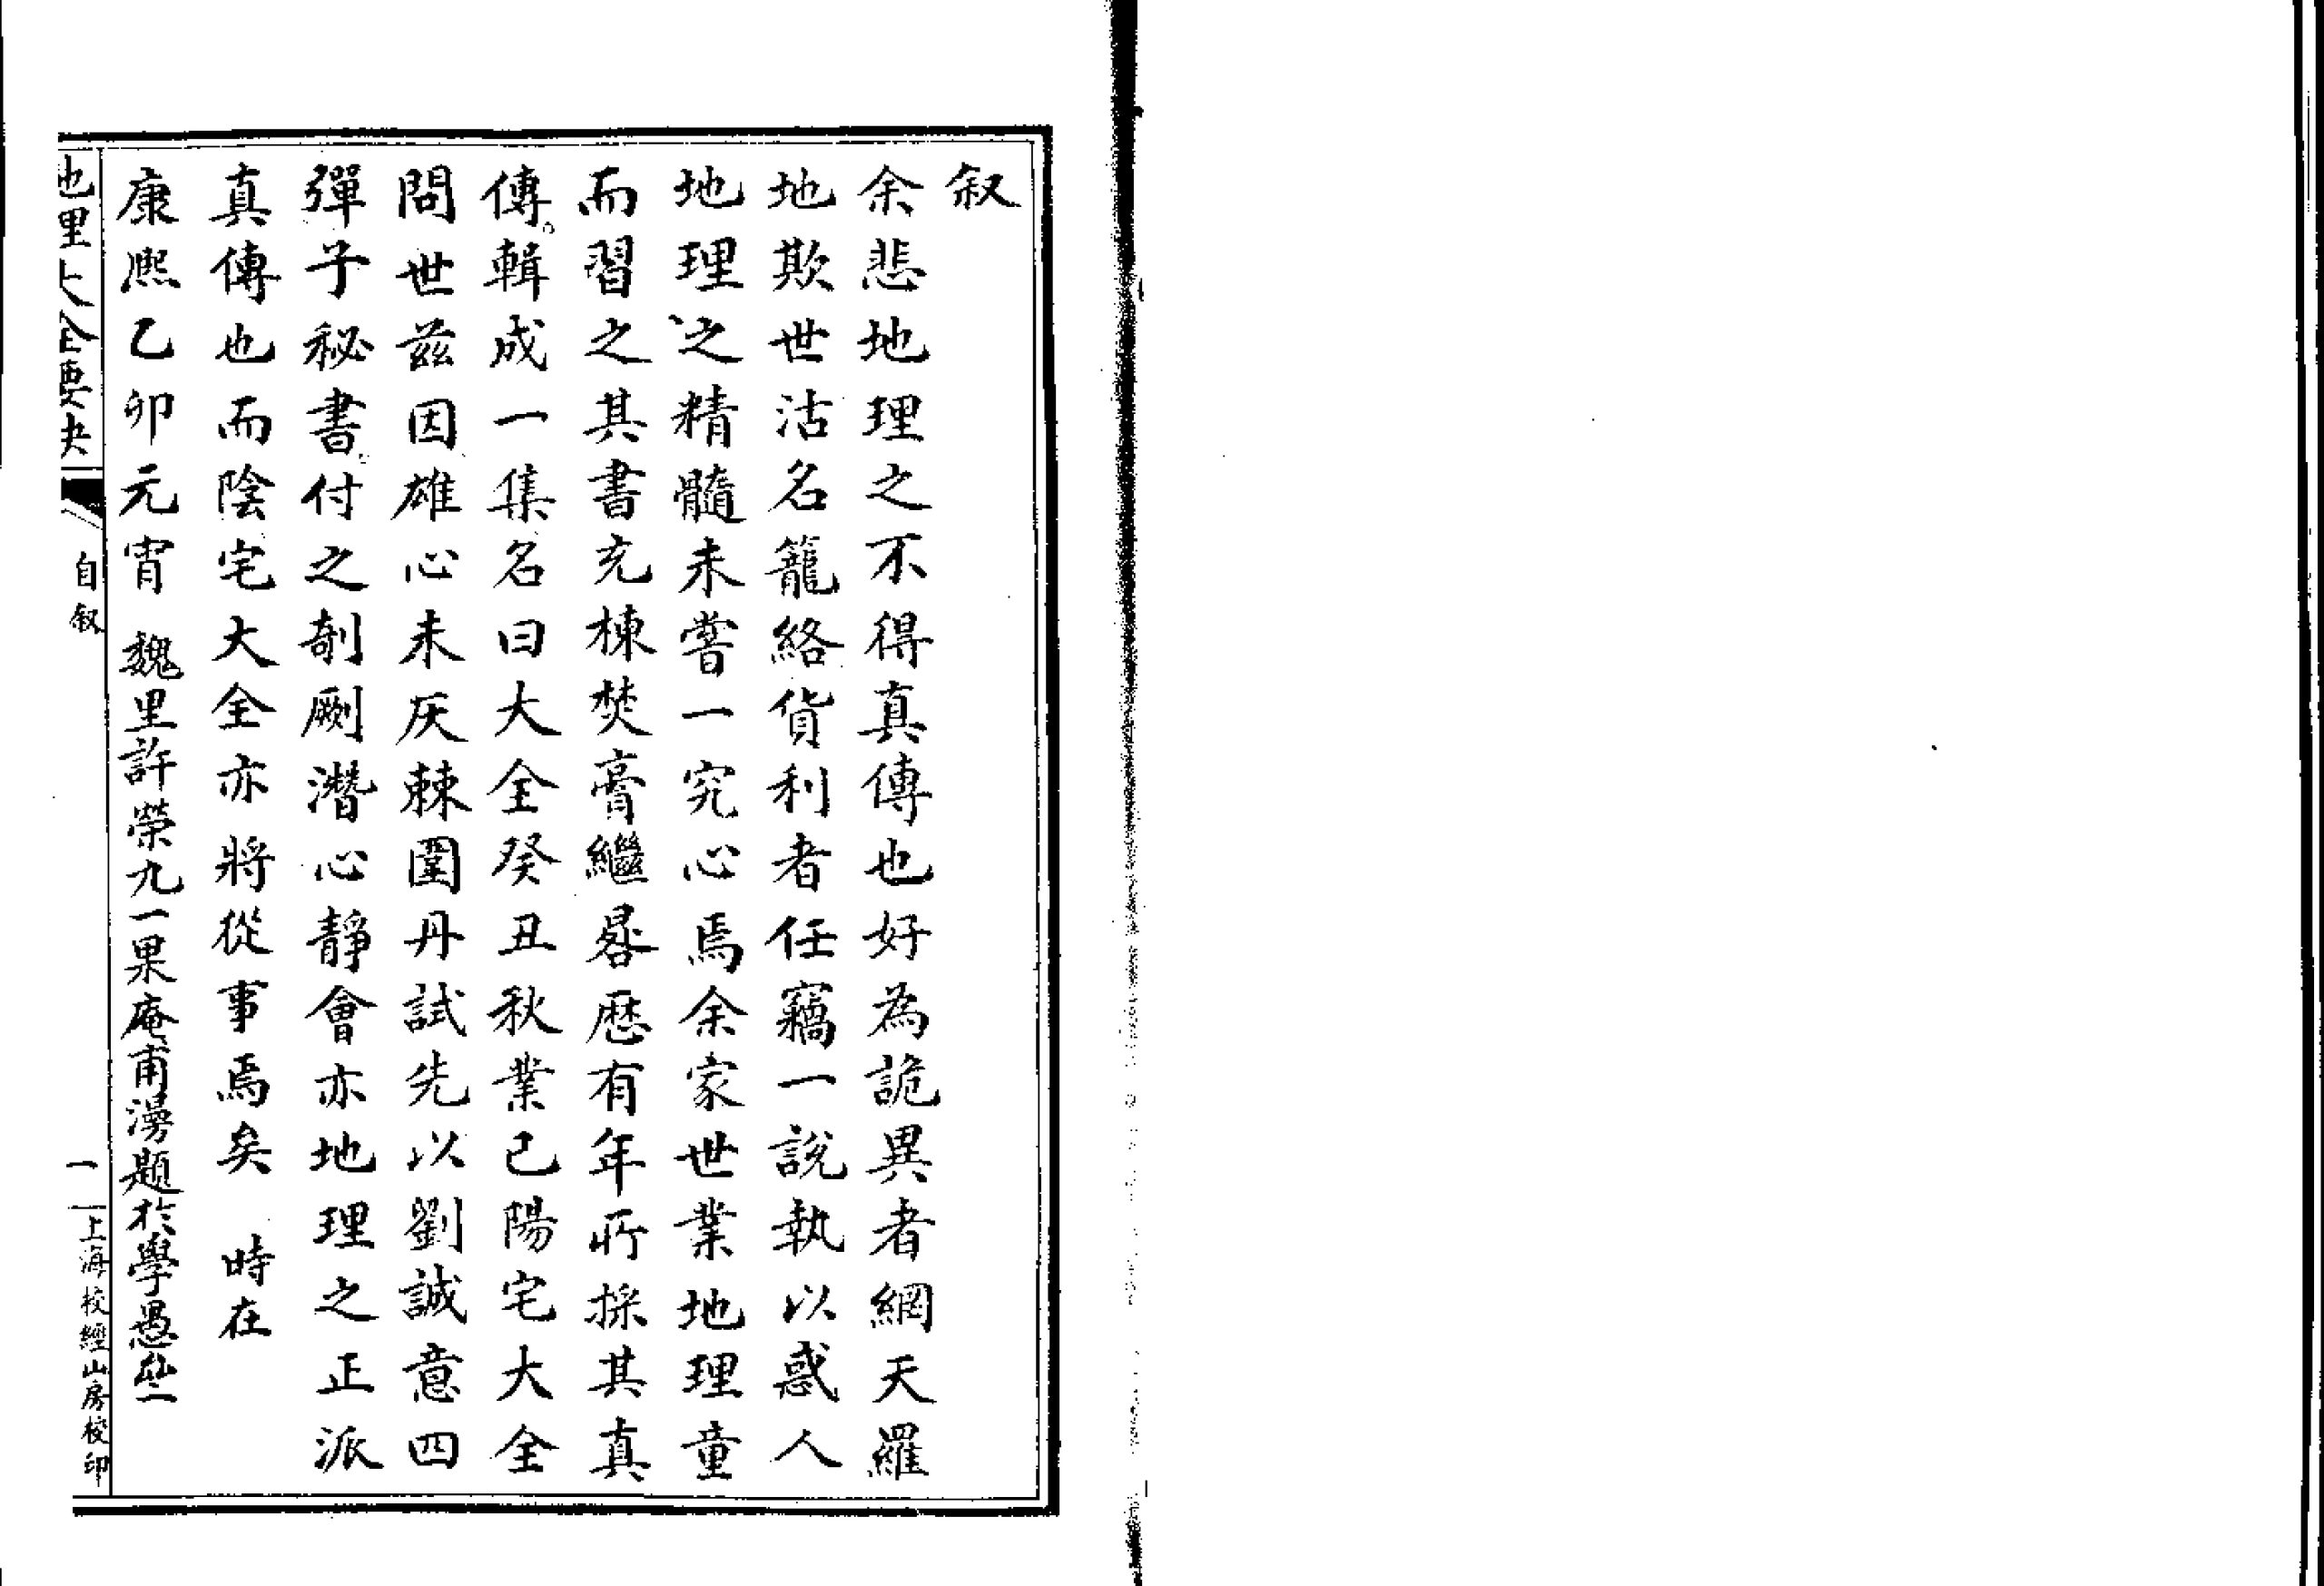 叙
余悲地理之不得真傳也好為詭異者網天羅
地欺世沽名籠絡貨利者任竊一說執以惑人
地理之精髓未嘗一究心焉余家世業地理童
而習之其書充棟焚膏繼晷歴有年所採其真
傳輯成一集名曰大全癸丑秋業已陽宅大全
問世兹因雄心未灰棘圍丹試先以劉誠意四
彈子秘書付之剞劂潛心靜會亦地理之正派
真傳也而陰宅大全亦將從事焉矣 時在
康熙乙卯元宵 魏里許榮九一果庵甫漫題於學愚
地理大全要訣 自叙 一 上海校經山房校印